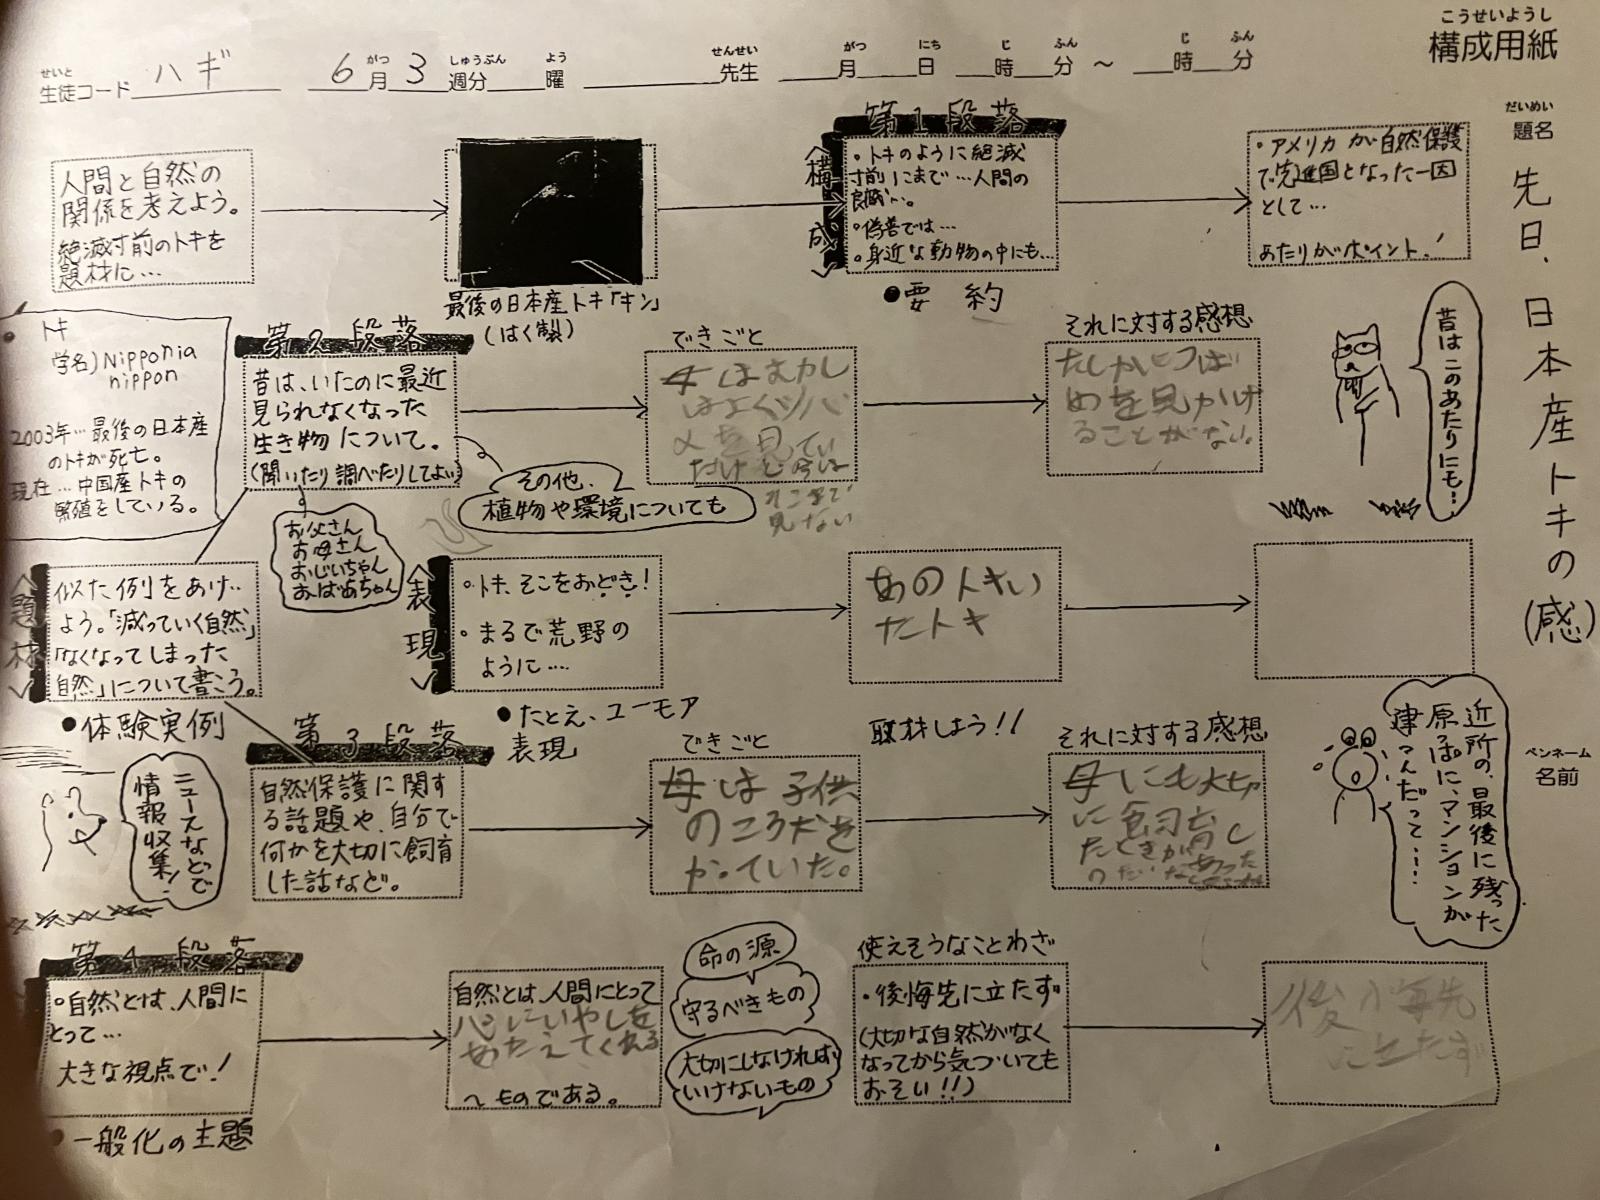 こうせいようし
構成用紙
せいと
生徒コード ハギ
がつ しゅうぶん よう
6月3週分 曜
せんせい がつ にち じ ふん じ ふん
先生 月 日 時 分 〜 時 分
だいめい
題名
先日、日本産トキの(感)
ペンネーム
名前
人間と自然の
関係を考えよう。
絶滅寸前のトキを
題材に…
最後の日本産トキ「キン」
(はく製)
第1段落
<構成>
・トキのように絶滅
寸前にまで…人間の
・偽善では…
・身近な動物の中にも…
●要約
・アメリカが自然保護
で先進国となった一因
として…
あたりがポイント!
●トキ
学名)Nipponia
nippon
2003年…最後の日本産
のトキが死亡。
現在…中国産トキの
繁殖をしている。
第2段落
昔は、いたのに最近
見られなくなった
生き物について。
(聞いたり調べたりしてよい)
お父さん
お母さん
おじいちゃん
おばあちゃん
その他、
植物や環境についても
できごと
母はむかし
はよくツバ
メを見てい
たけど今は
そこまで
見ない
それに対する感想
たしかにつば
めを見かけ
ることがない。
昔はこのあたりにも…
<題材>
似た例をあげ
よう。「減っていく自然」
「なくなってしまった
自然」について書こう。
●体験実例
<表現>
・トキ、そこをおどき!
・まるで荒野の
ように…
●たとえ、ユーモア
表現
あのトキい
たトキ
取材しよう!!
近所の、最後に残った
原っぱに、マンションが
建つんだって……
ニュースなどで
情報収集!
第3段落
自然保護に関す
る話題や、自分で
何かを大切に飼育
した話など。
できごと
母は子供
のころ犬を
かっていた。
それに対する感想
母にも大切
に飼育し
たときが
第4段落
・自然とは、人間に
とって…
大きな視点で!
●一般化の主題
自然とは、人間にとって
いやしを
あたえてくれる
〜ものである。
命の源
守るべきもの
大切にしなければ
いけないもの
使えそうなことわざ
・後悔先に立たず
(大切な自然がなく
なってから気づいても
おそい!!)
後悔先
に立たず